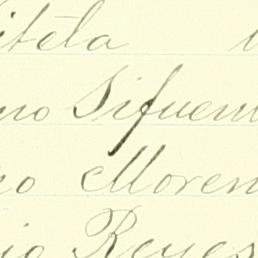 itela
no Sifuen
no Moren
io Reyes